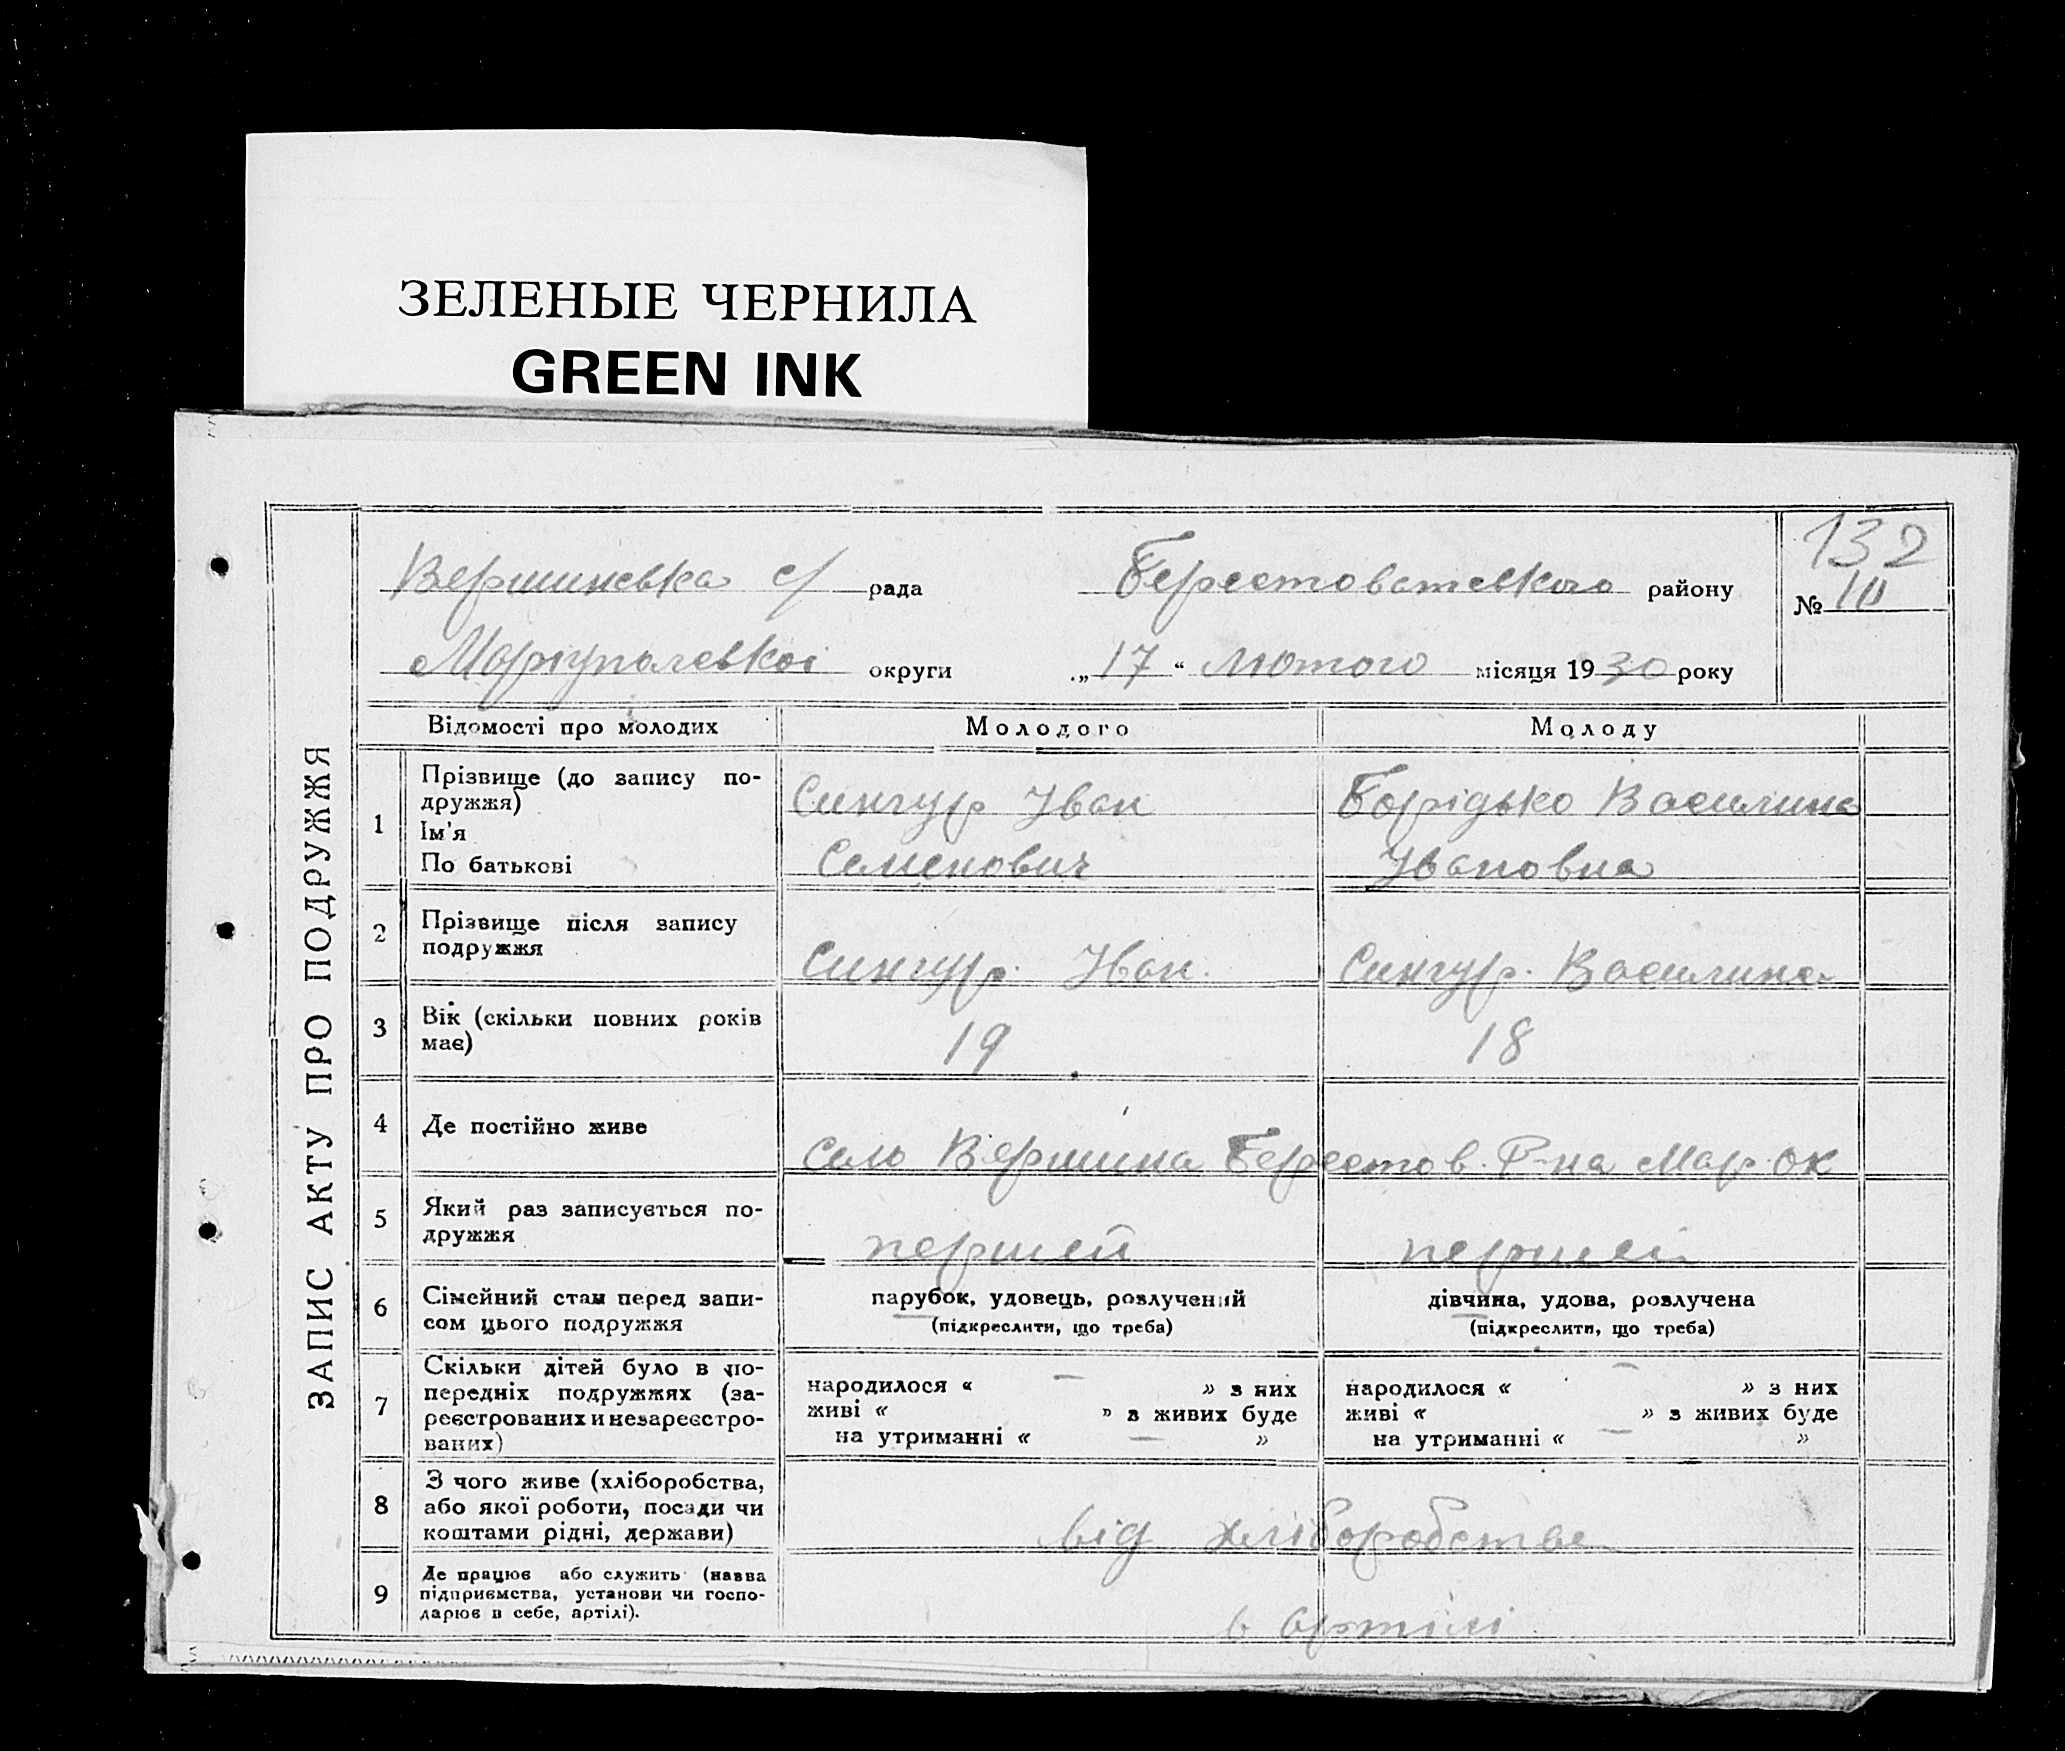 ЗЕЛЕНЫЕ ЧЕРНИЛА
GREEN INK
132
Вершинська с/ рада Берестоватського району № 10
Маріупольської округи „17“ Лютого місяця 1930 року
ЗАПИС АКТУ ПРО ПОДРУЖЖЯ
Відомості про молодих Молодого Молоду
1 Прізвище (до запису по-
дружжя)
Ім'я
По батькові
Сингур Іван
Семенович
Борідько Василина
Івановна
2 Прізвище після запису
подружжя
Сингур. Іван. Сингур. Василина
3 Вік (скільки повних років
має)
19 18
4 Де постійно живе
село Вершина Берестов. Р-на Мар. ок
5 Який раз записується по-
дружжя
першей першей
6 Сімейний стан перед запи-
сом цього подружжя
парубок, удовець, розлучений
(підкреслити, що треба)
дівчина, удова, розлучена
(підкреслити, що треба)
7 Скільки дітей було в по-
передніх подружжях (за-
реєстрованих и незареєстро-
ваних)
народилося « — » з них
живі « » з живих буде
на утриманні « — »
народилося « — » з них
живі « » з живих буде
на утриманні « — »
8 З чого живе (хліборобства,
або якої роботи, посади чи
коштами рідні, держави)
від хліборобства
9 Де працює або служить (назва
підприємства, установи чи госпо-
дарює в себе, артілі).
в артілі